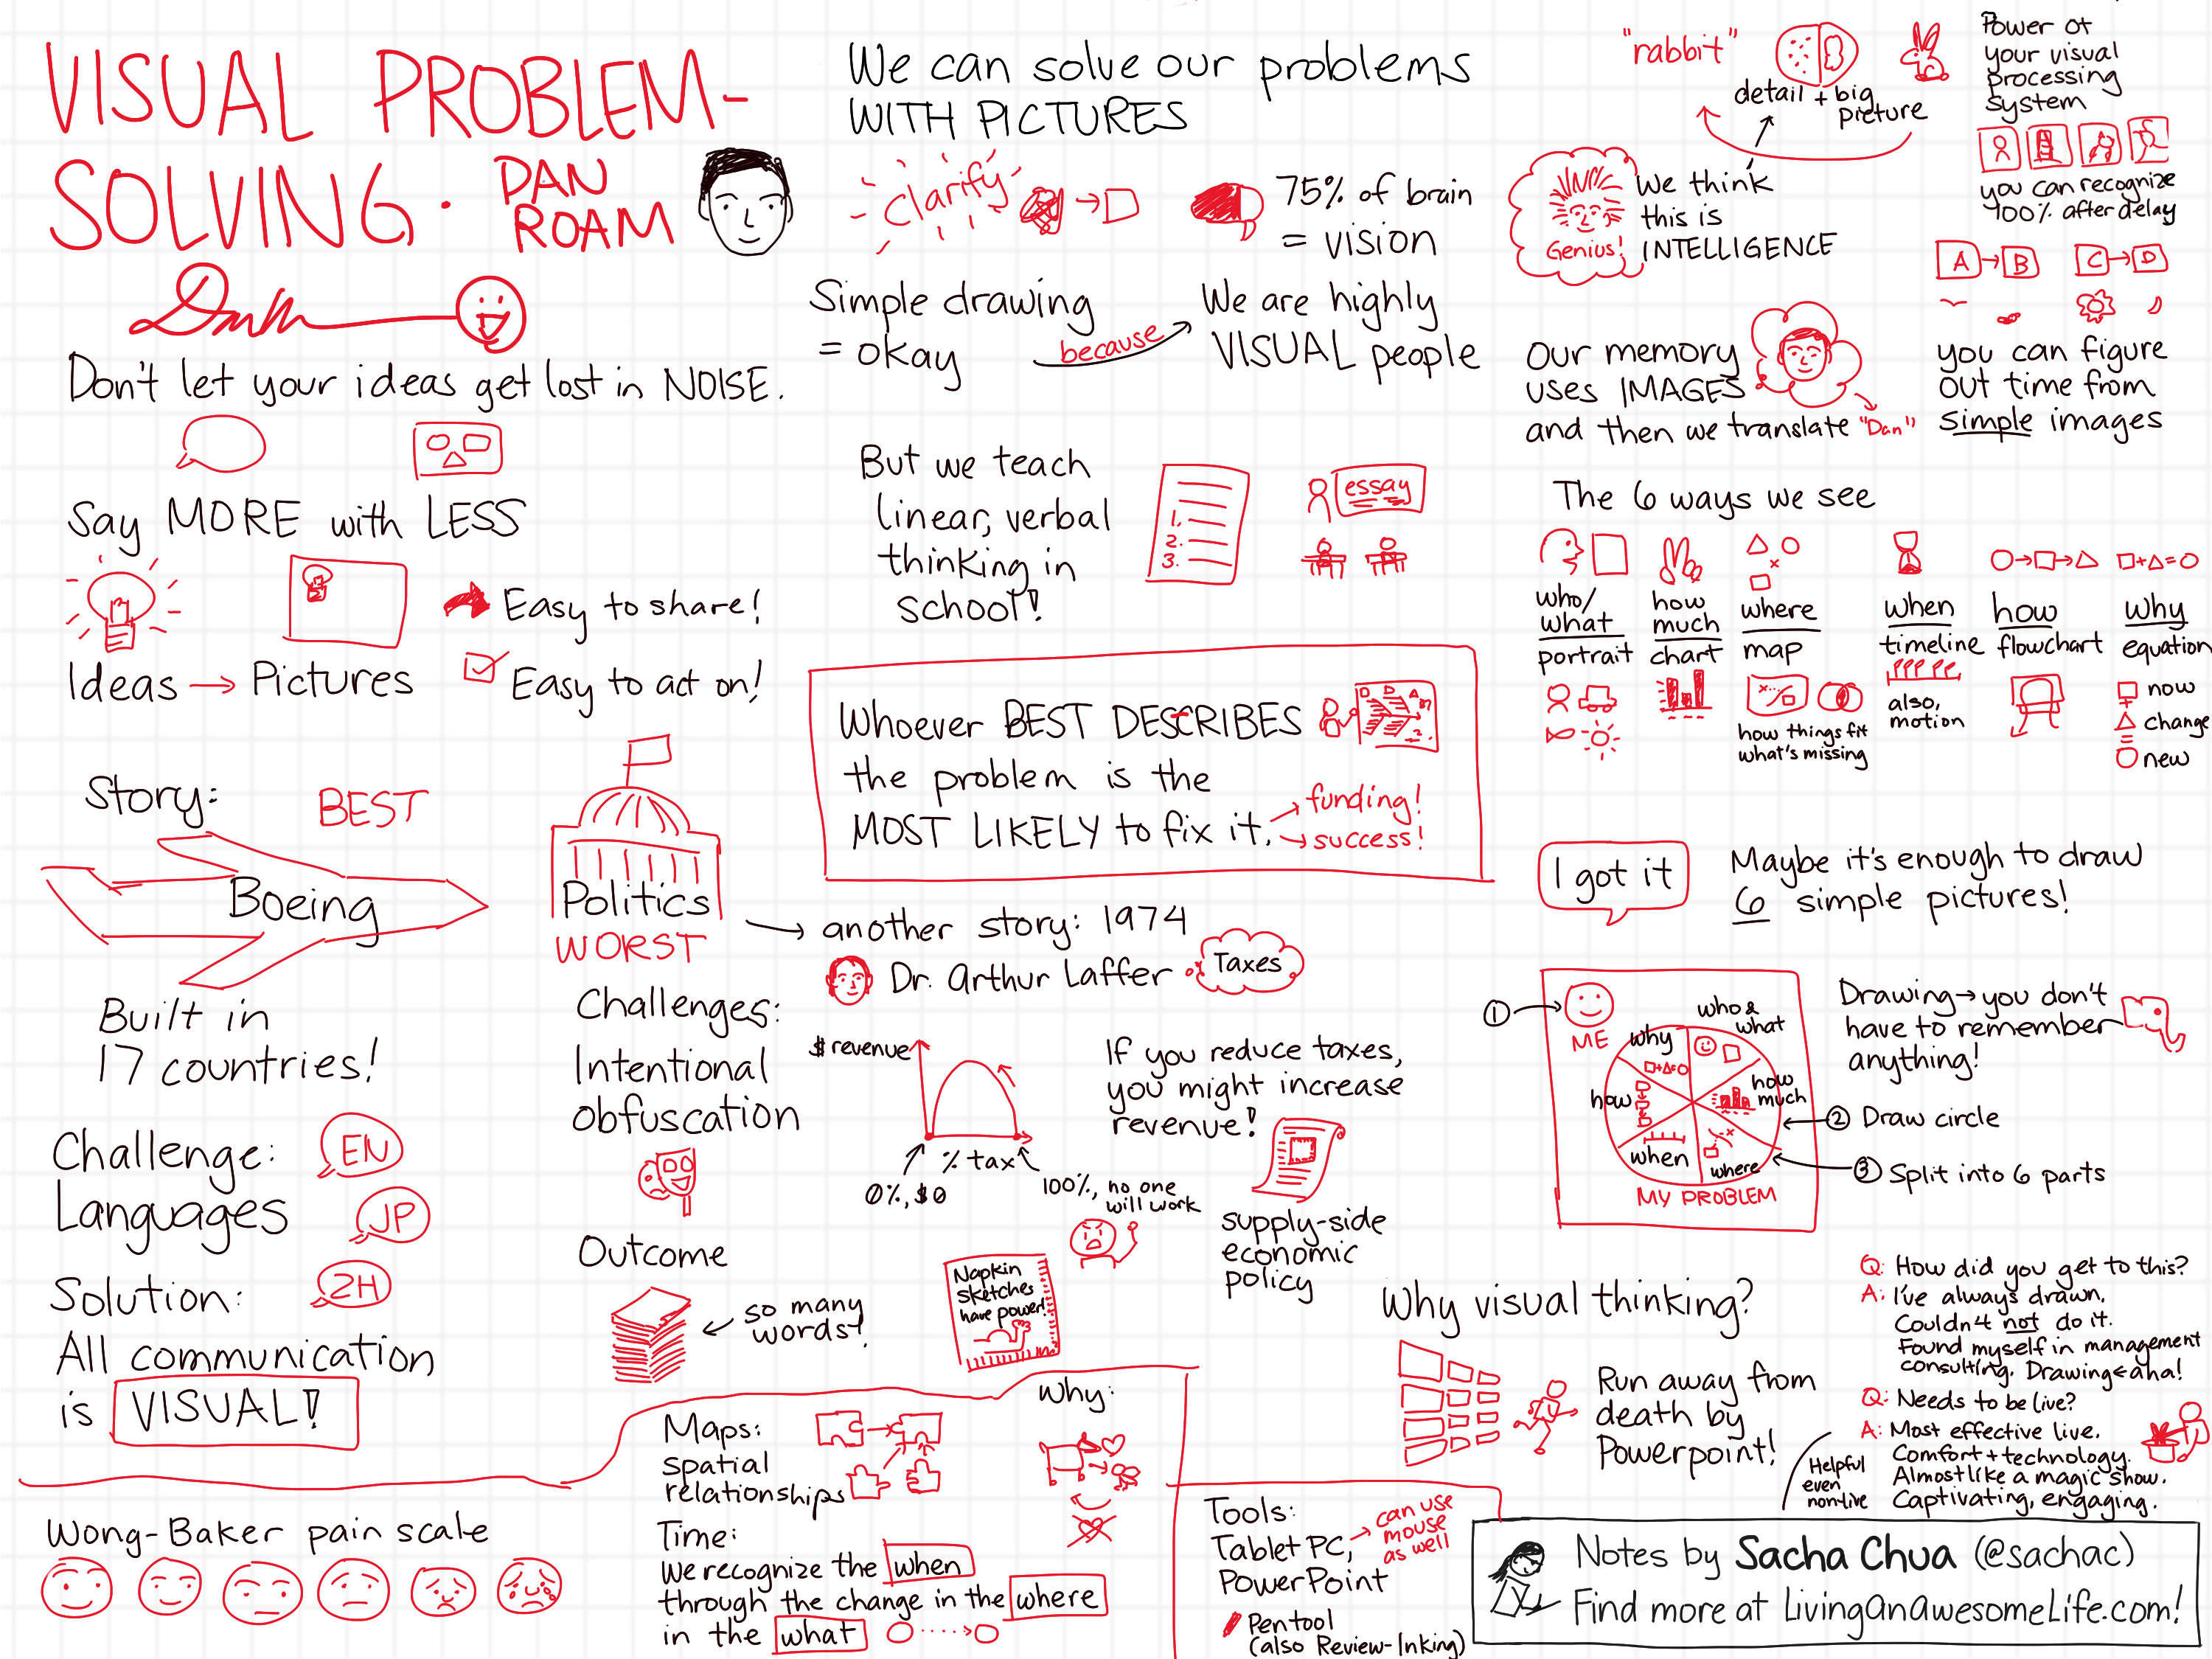 VISUAL PROBLEM-
SOLVING · DAN
ROAM
Don't let your ideas get lost in NOISE.
Say MORE with LESS
Ideas → Pictures
Easy to share!
Easy to act on!
Story:
BEST
Boeing
Built in
17 countries!
Challenge:
Languages
EN
JP
ZH
Solution:
All communication
is VISUAL!
Politics
WORST
Challenges:
Intentional
obfuscation
Outcome
so many
words!
We can solve our problems
WITH PICTURES
Clarify
75% of brain
= vision
Simple drawing
= okay
because
We are highly
VISUAL people
But we teach
linear, verbal
thinking in
school!
1.
2.
3.
essay
Whoever BEST DESCRIBES
the problem is the
MOST LIKELY to fix it.
funding!
success!
another story: 1974
Dr. Arthur Laffer
Taxes
$ revenue
% tax
0%, $0
100%, no one
will work
If you reduce taxes,
you might increase
revenue!
supply-side
economic
policy
Napkin
sketches
have power!
"rabbit"
detail + big
picture
Genius!
We think
this is
INTELLIGENCE
Our memory
uses IMAGES
and then we translate "Dan"
Power of
your visual
processing
system
you can recognize
100% after delay
A → B
C → D
you can figure
out time from
simple images
The 6 ways we see
who/
what
portrait
how
much
chart
where
map
how things fit
what's missing
when
timeline
also,
motion
how
flowchart
why
equation
now
change
new
I got it
Maybe it's enough to draw
6 simple pictures!
1
ME
who &
what
how
much
where
when
how
why
MY PROBLEM
Drawing → you don't
have to remember
anything!
2 Draw circle
3 Split into 6 parts
Why visual thinking?
Run away from
death by
Powerpoint!
Q: How did you get to this?
A: I've always drawn.
Couldn't not do it.
Found myself in management
consulting. Drawing ← aha!
Q: Needs to be live?
A: Most effective live.
Comfort + technology.
Almost like a magic show.
Captivating, engaging.
Helpful
even
non-live
Wong-Baker pain scale
Maps:
spatial
relationships
Why:
Time:
We recognize the when
through the change in the where
in the what
Tools:
Tablet PC,
PowerPoint
can use
mouse
as well
Pen tool
(also Review-Inking)
Notes by Sacha Chua (@sachac)
Find more at LivingAnAwesomeLife.com!